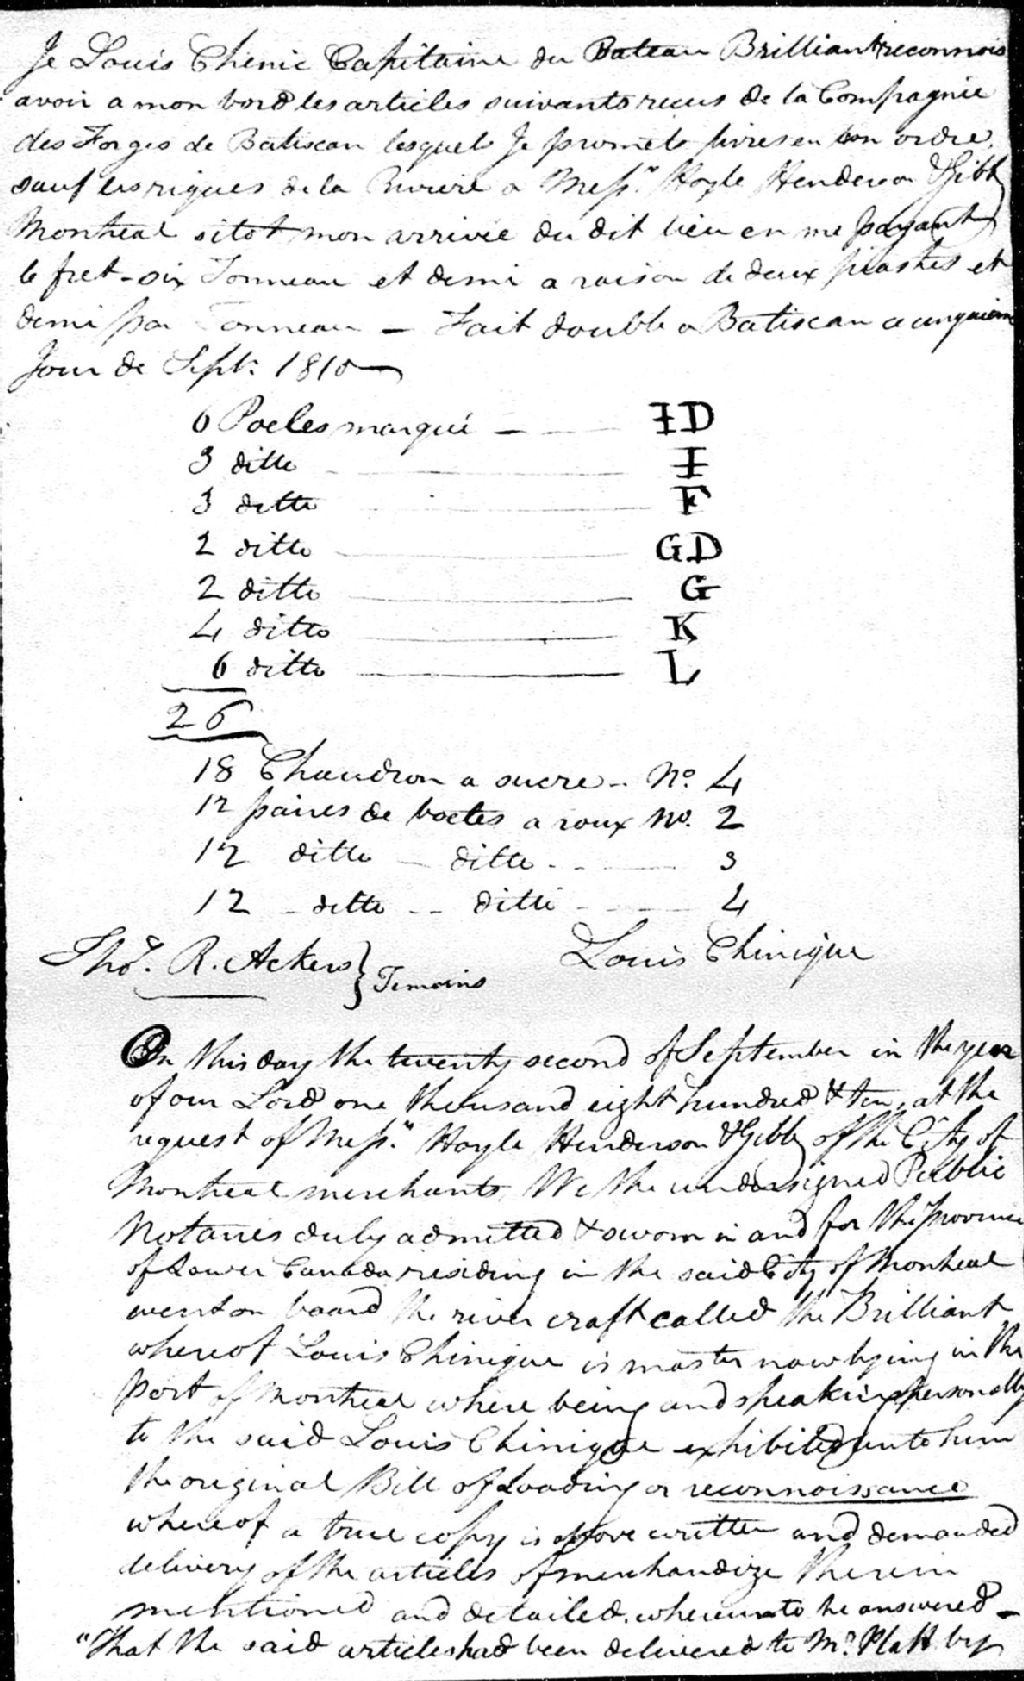 Je Louis Chinic Capitaine du Bateau Brilliant reconnois
avoir a mon bord les articles suivants recus de la Compagnie
des Forges de Batiscan lesquels Je promets livres en bon ordre,
sauf les rigues de la Riviere a Messrs. Hoyle Henderson & Gibb
Montreal sitot mon arrivée du dit lieu en me payant
le fret - six Tonneau et demi a raison de deux piastres et
demi par Tonneau — Fait double a Batiscan ce cinquieme
Jour de Sept. 1810 —
6 Poeles marqué — ID
3 ditto I
3 ditto F
2 ditto GD
2 ditto G
4 ditto K
6 ditto L
26
18 Chaudron a sucre - No. 4
12 paires de boetes a roux No. 2
12 ditto ditto 3
12 ditto ditto 4
Thos. R. Ackers } Temoins Louis Chinique
On this day the twenty second of September in the year
of our Lord one thousand eight hundred & ten, at the
request of Messrs. Hoyle Henderson & Gibb of the City of
Montreal merchants, We the undersigned Public
Notaries duly admitted & sworn in and for the province
of Lower Canada residing in the said City of Montreal
went on board the river craft called the Brilliant
whereof Louis Chinique is master now lying in the
Port of Montreal where being and speaking personally
to the said Louis Chinique exhibited unto him
the original Bill of Loading or reconnoissance
whereof a true copy is above written and demanded
delivery of the articles of merchandize therein
mentioned and detailed, whereunto he answered —
"That the said articles had been delivered to Mr. Platt by